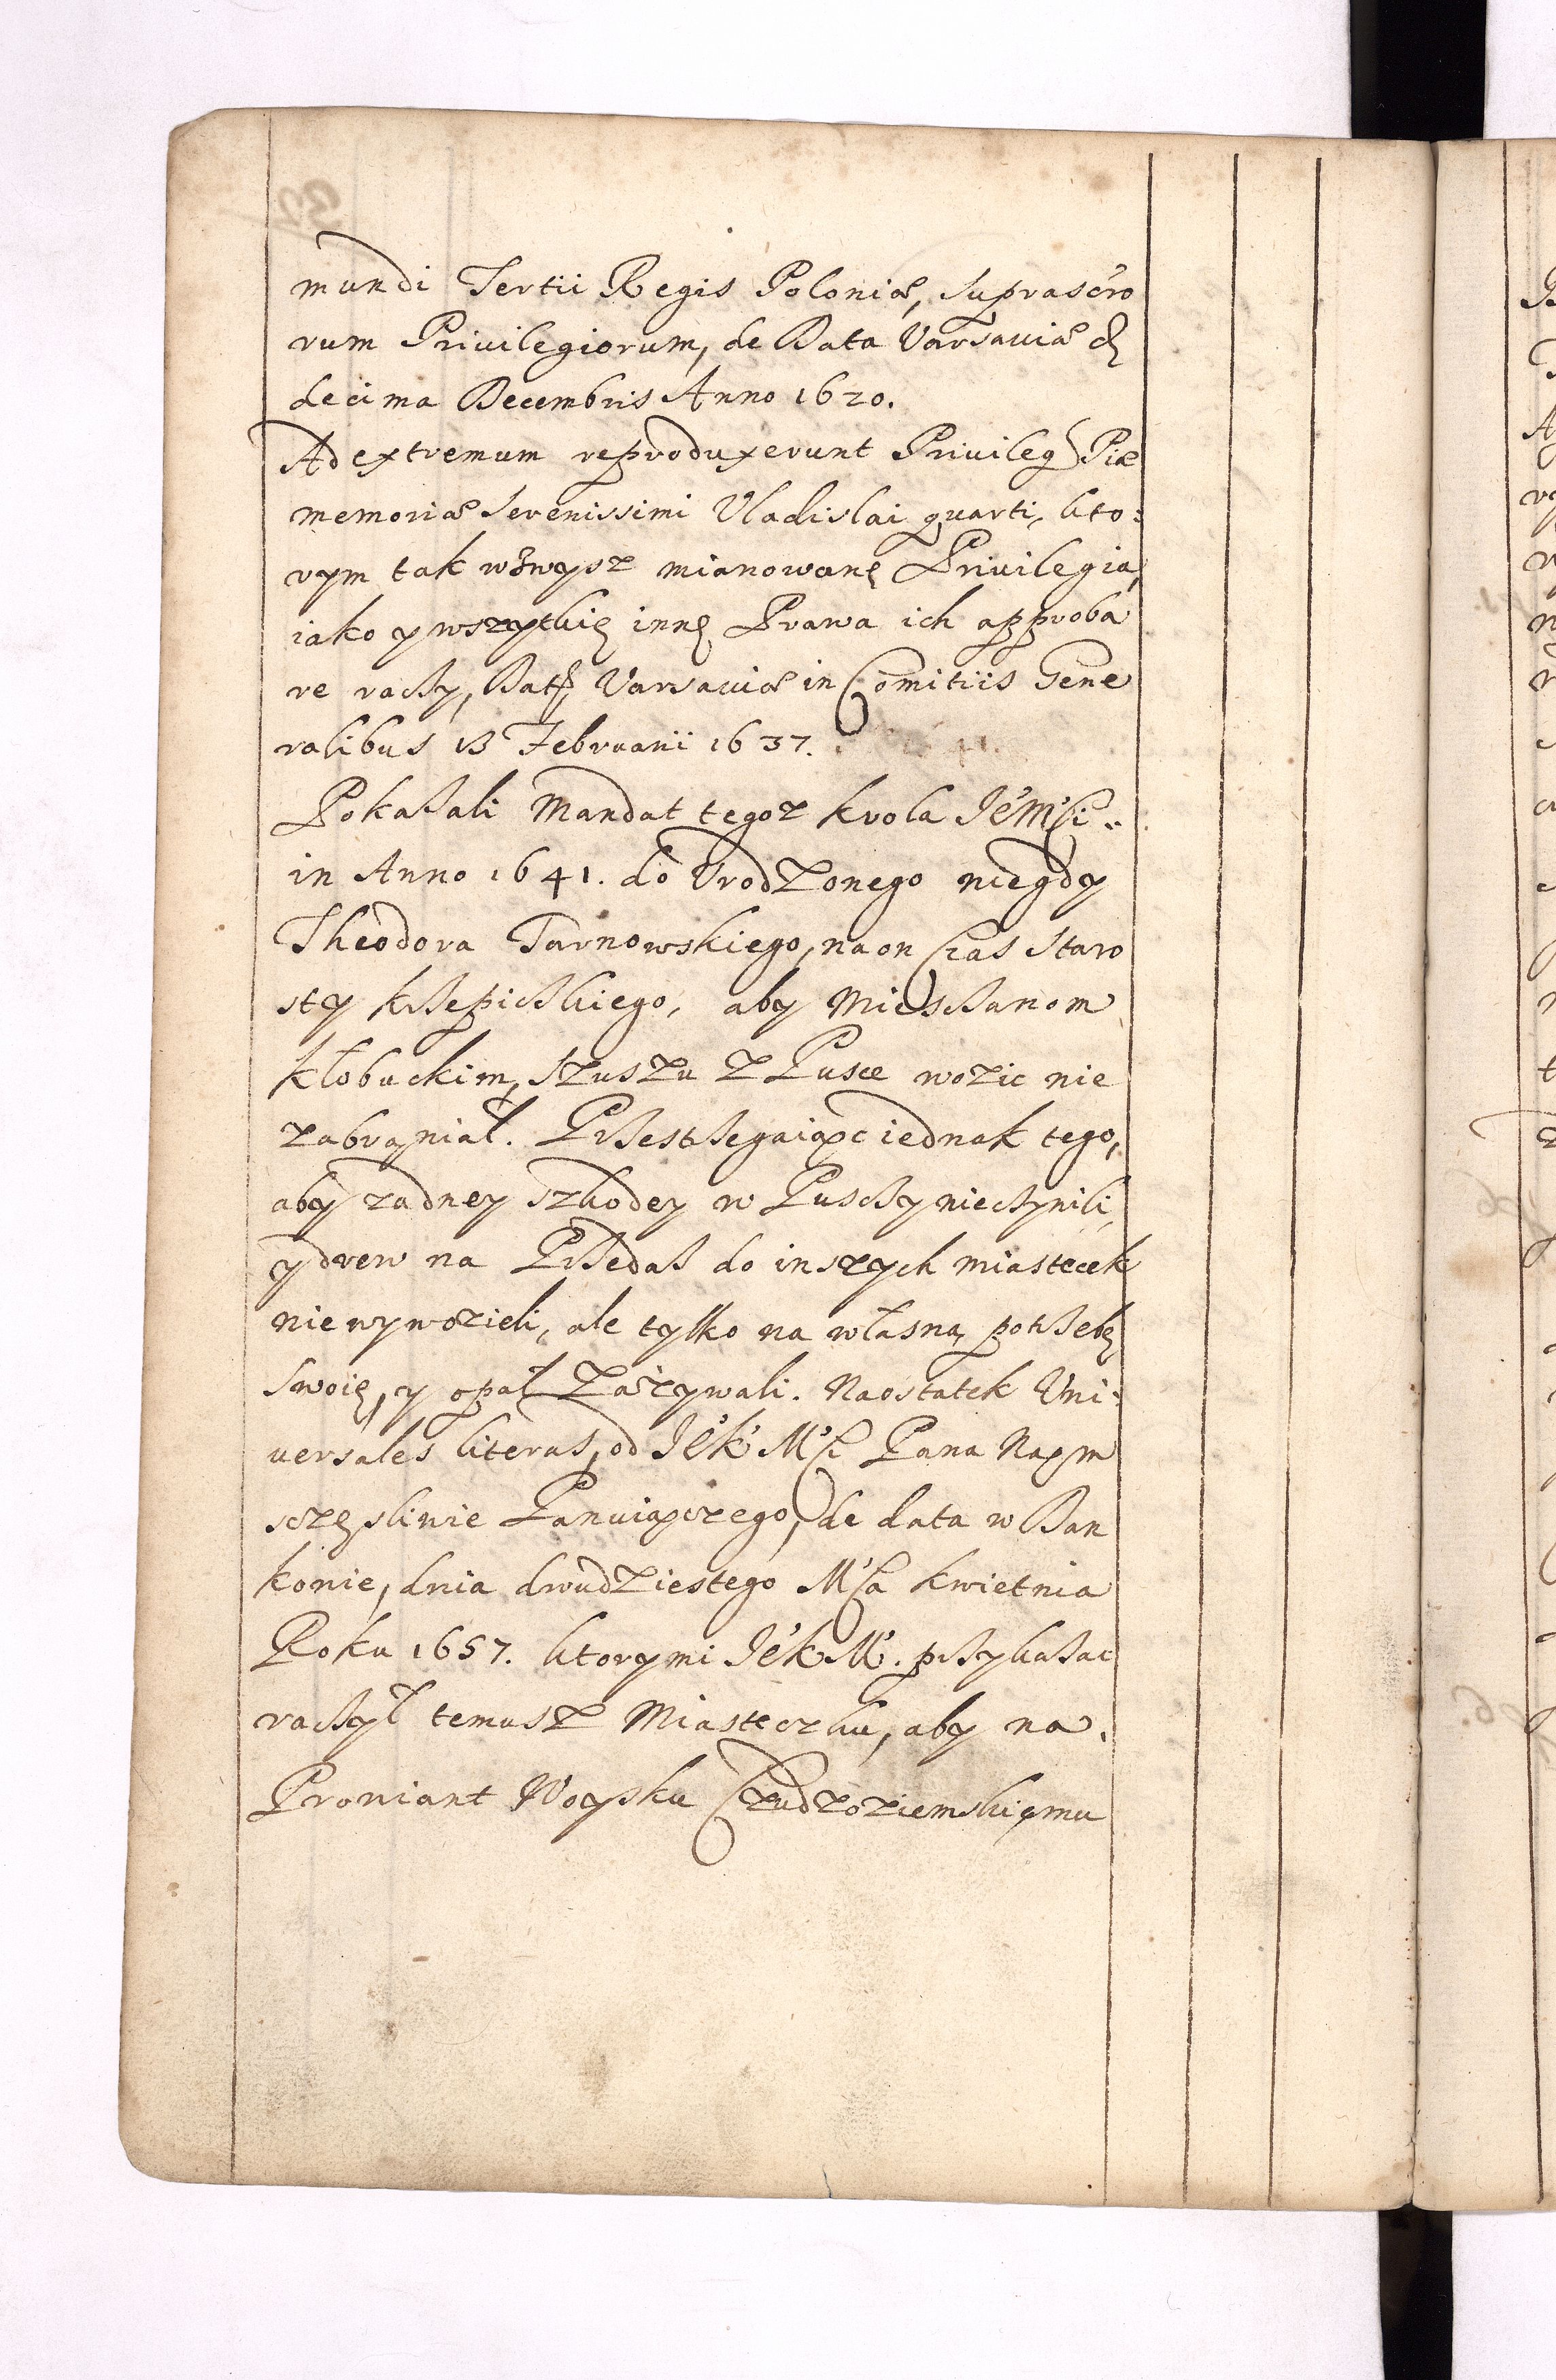 mundi Tertii Regis Poloniæ, suprascro
rum Privilegiorum, de Data Varsaviæ d
decima Decembris Anno 1620.
Ad extremum reproduxerunt Privileg Piæ
memoriæ Serenissimi Vladislai quarti, kto:
rym tak wzwysz mianowanę Privilegia,
iako y wszytkię innę Prawa ich approba
re raczy, Dat, Varsaviæ in Comitiis Gene
ralibus 13 Februarii 1637.
Pokazali Mandat tegoz krola JéMści..
in Anno 1641. do Vrodzonego niegdy
Theodora Tarnowskiego, na on Czas Staro
sty krzepickiego, aby Miesczanom
kłobuckim, szuszu z Pusce wozic nie
zabraniał. Przestzegaiąc iednak tego,
aby zadney szkodey w Pusczy nieczynili,
y drew na Przedaz do inszych miastecek
nie wywozieli, ale tylko na własną potrzebę
swoię, y opał zazywali. Naostatek Vni:
uersales literas, od Jék Mści Pana Naszm
sczęsliwie Panuiączego, de data w Dan
konie, dnia dwudziestego Mśca kwietnia
Roku 1657. ktorymi JékM. przykazac
raczył temusz Miasteczku, aby na
Prowiant Woysku Czudzoziemskięmu